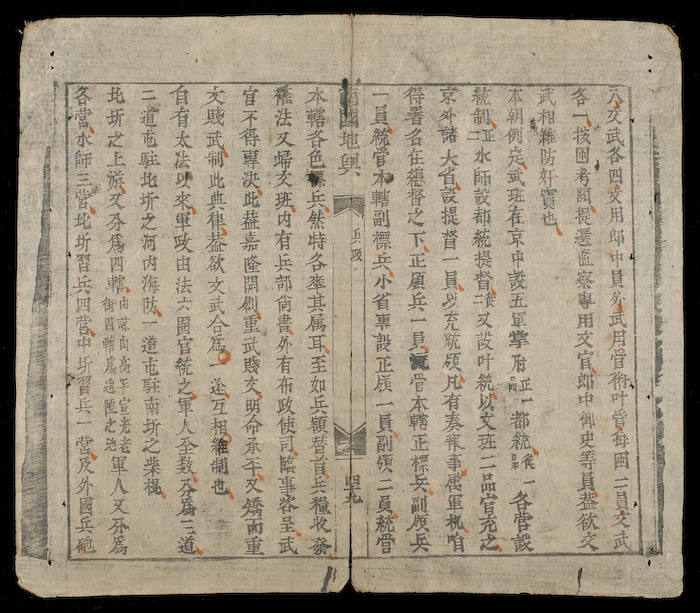 文武各四文用郎中員外武用管衛叶管每圻二員文武
各一按圻考閱提選監察專用文官郎中御史等員葢欲文
武相維防奸竇也
本朝例定武班在京中設五軍掌府正一品都統從一品各營設
統制正二水師設都統提督從二又設叶統以文班二品官充之
京外諸大省設提督一員以充統領凡有奏報事属軍咱
得署名在總督之下正領兵一員管本轄正標兵副領兵
一員統管本轄副標兵小省專設正領一員副領二員統管
南國地輿
兵政
四九
本轄各色標兵然特各率其属耳至如兵額替首兵糧收發
權法又歸文班内有兵部尚書外有布政使司臨事咨呈武
官不得專决此葢嘉隆開創重武賤文明命承平又矯而重
文賤武制此典律葢欲文武合爲一途互相維制也
自有太法以來軍政由法六圈官統之軍人全数分爲三道
二道屯駐北圻之河内海防一道屯駐南圻之柴棍
北圻之上游又分爲四轄由諒山高平宣光老街四轄爲邊陲之地軍人又分爲
各營水師三營北圻習兵四營中圻習兵一營及外國兵砲